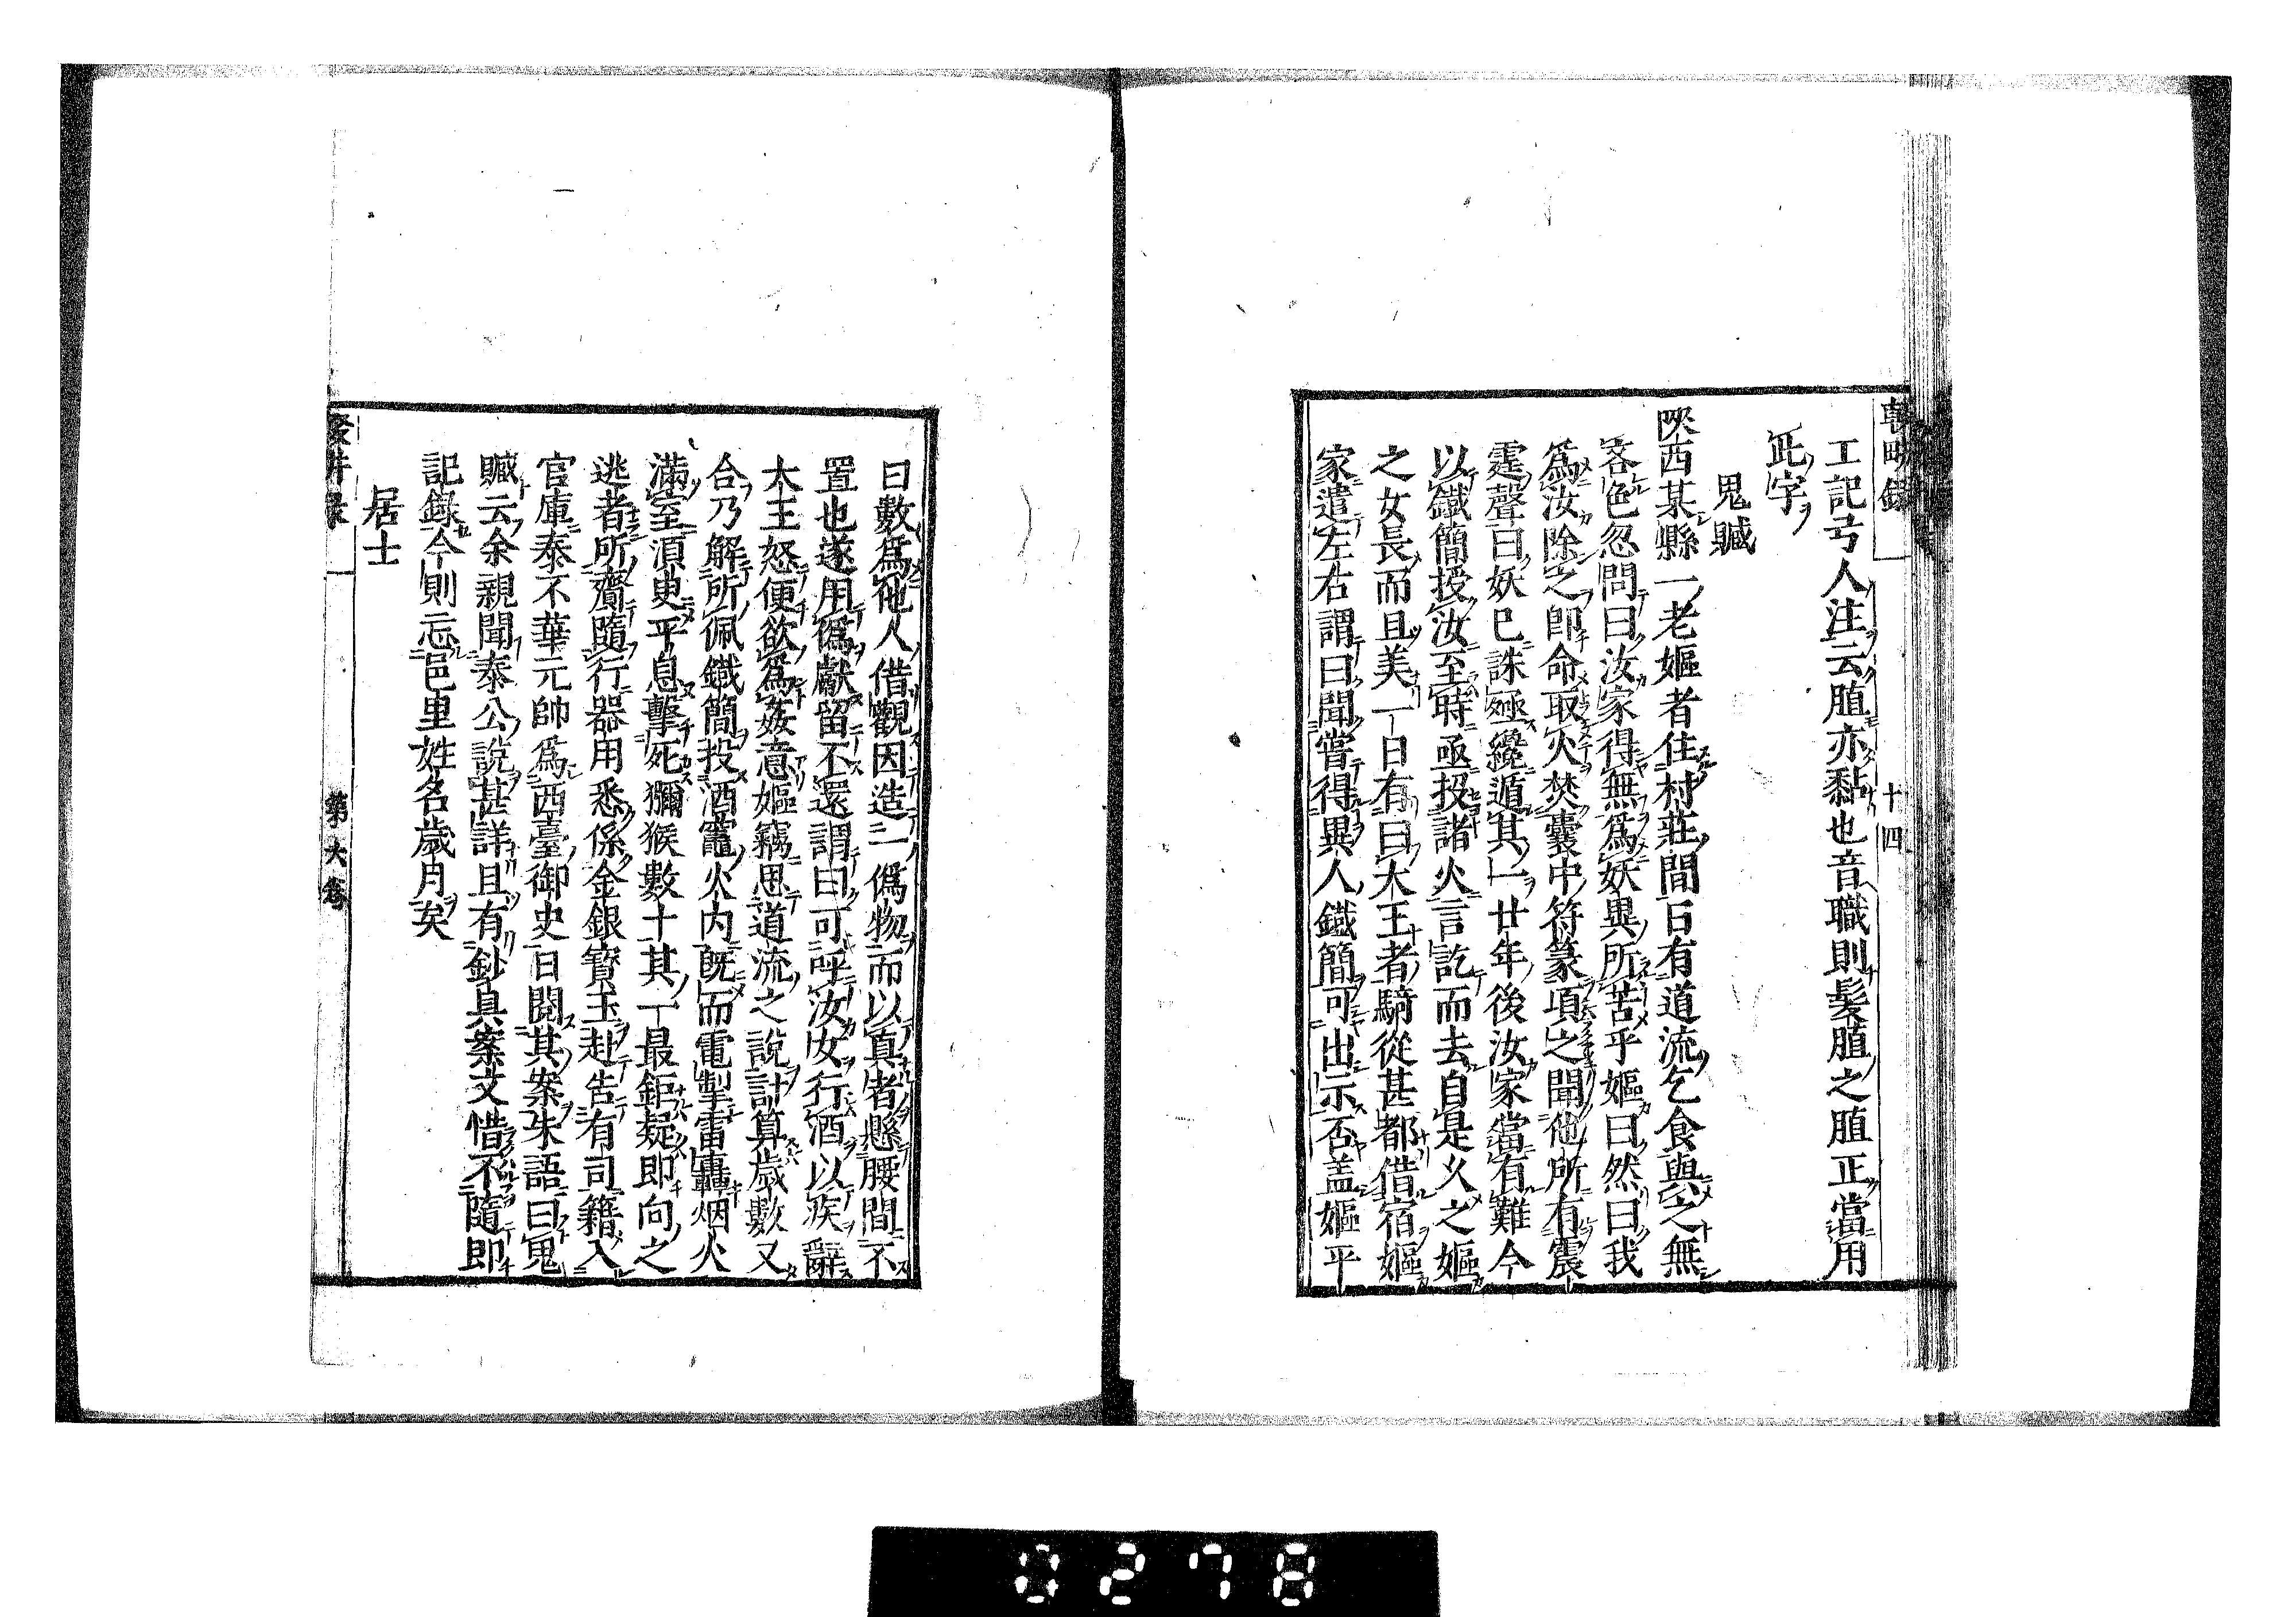 輟畊錄
十四
工記弓人注云䐈亦黏也音職則髮䐈之䐈正當用
此字
鬼贓
陝西某縣一老嫗者住村莊間日有道流乞食與之無
吝色忽問曰汝家得無爲妖異所苦乎嫗曰然曰我
爲汝除之即命取火焚囊中符篆頃之聞他所有震
霆聲曰妖已誅殛纔遁其一廿年後汝家當有難今
以鐵簡授汝至時亟投諸火言訖而去自是久之嫗
之女長而且美一日有曰大王者騎從甚都借宿嫗
家遣左右謂曰聞嘗得異人鐵簡可出示否盖嫗平
日數爲他人借觀因造一僞物而以真者懸腰間不
置也遂用僞獻留不還謂曰可呼汝女行酒以疾辭
大王怒便欲爲姦意嫗竊思道流之說計算歲數又
合乃解所佩鐵簡投酒竈火内旣而電掣雷轟烟火
滿室須臾平息擊死獼猴數十其一最鉅疑即向之
逃者所齎隨行器用悉係金銀寶玉赴告有司籍入
官庫泰不華元帥爲西臺御史日閱其案朱語曰鬼
贓云余親聞泰公說甚詳且有鈔具案文惜不隨即
記錄今則忘邑里姓名歲月矣
居士
輟畊录
第六卷
0278